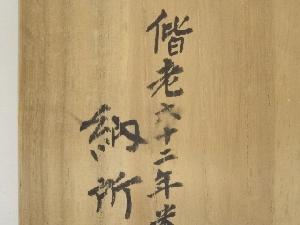 偕老六十二年米
納所